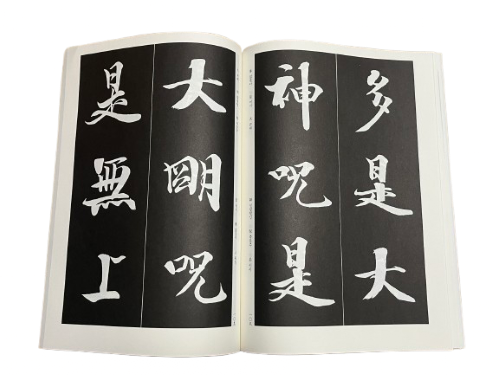 多是大
神呪是
大明呪
是無上